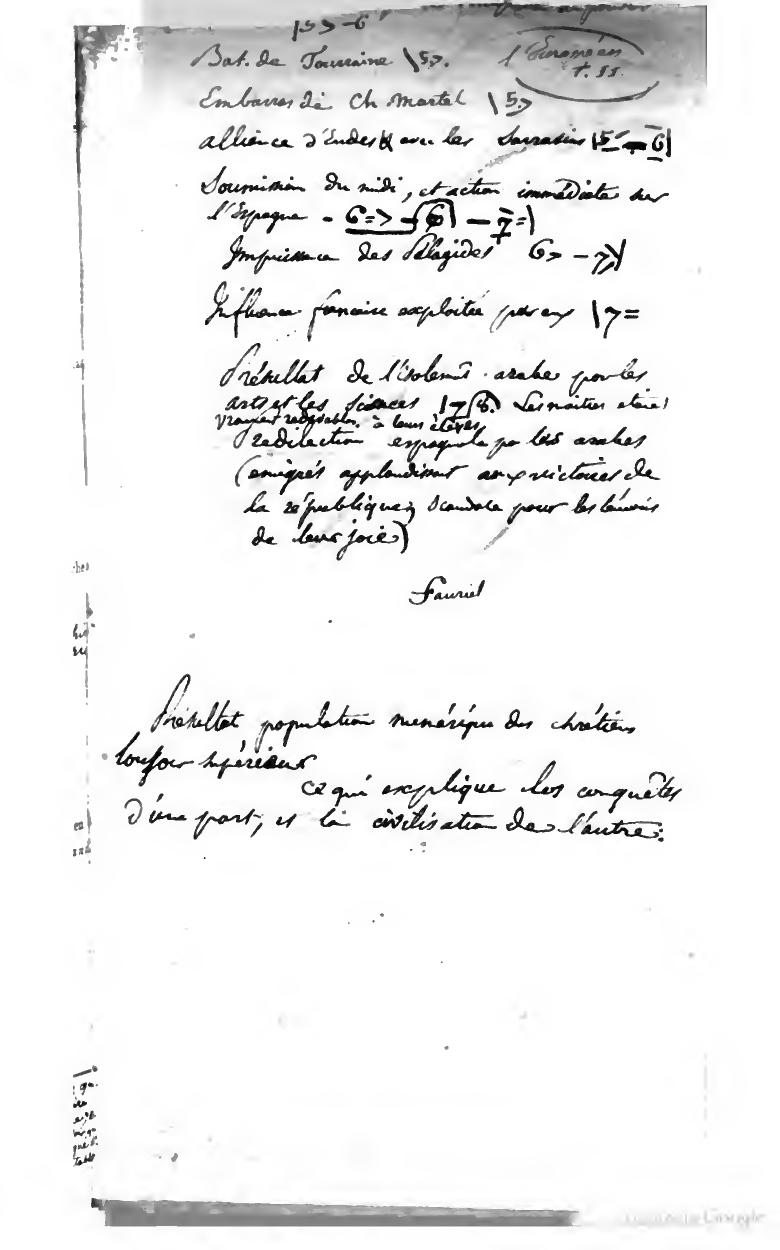 |5> – 6
Bat. de Touraine \5>. l'Européen
t. II.
Embarras de Ch Martel \5>
alliance d'Eudes avec les Sarrasins |5 – 6|
Soumission du midi, et action immédiate sur
l'Espagne – 6=> – 6| – 7=|
Impuissance des Pélagides 6> – 7>|
Influence française exploitée par eux \7=
Résultat de l'isolemt arabe pour les
arts et les sciences |7 Les maîtres étaient
vraiment redevables à leurs élèves
Prédilection espagnole pr les arabes
(émigrés applaudissant aux victoires de
la république; Scandale pour les témoins
de leur joie)
Fauriel
Résultat population numérique des chrétiens
toujours supérieur
ce qui explique les conquêtes
d'une part, et la civilisation de l'autre.